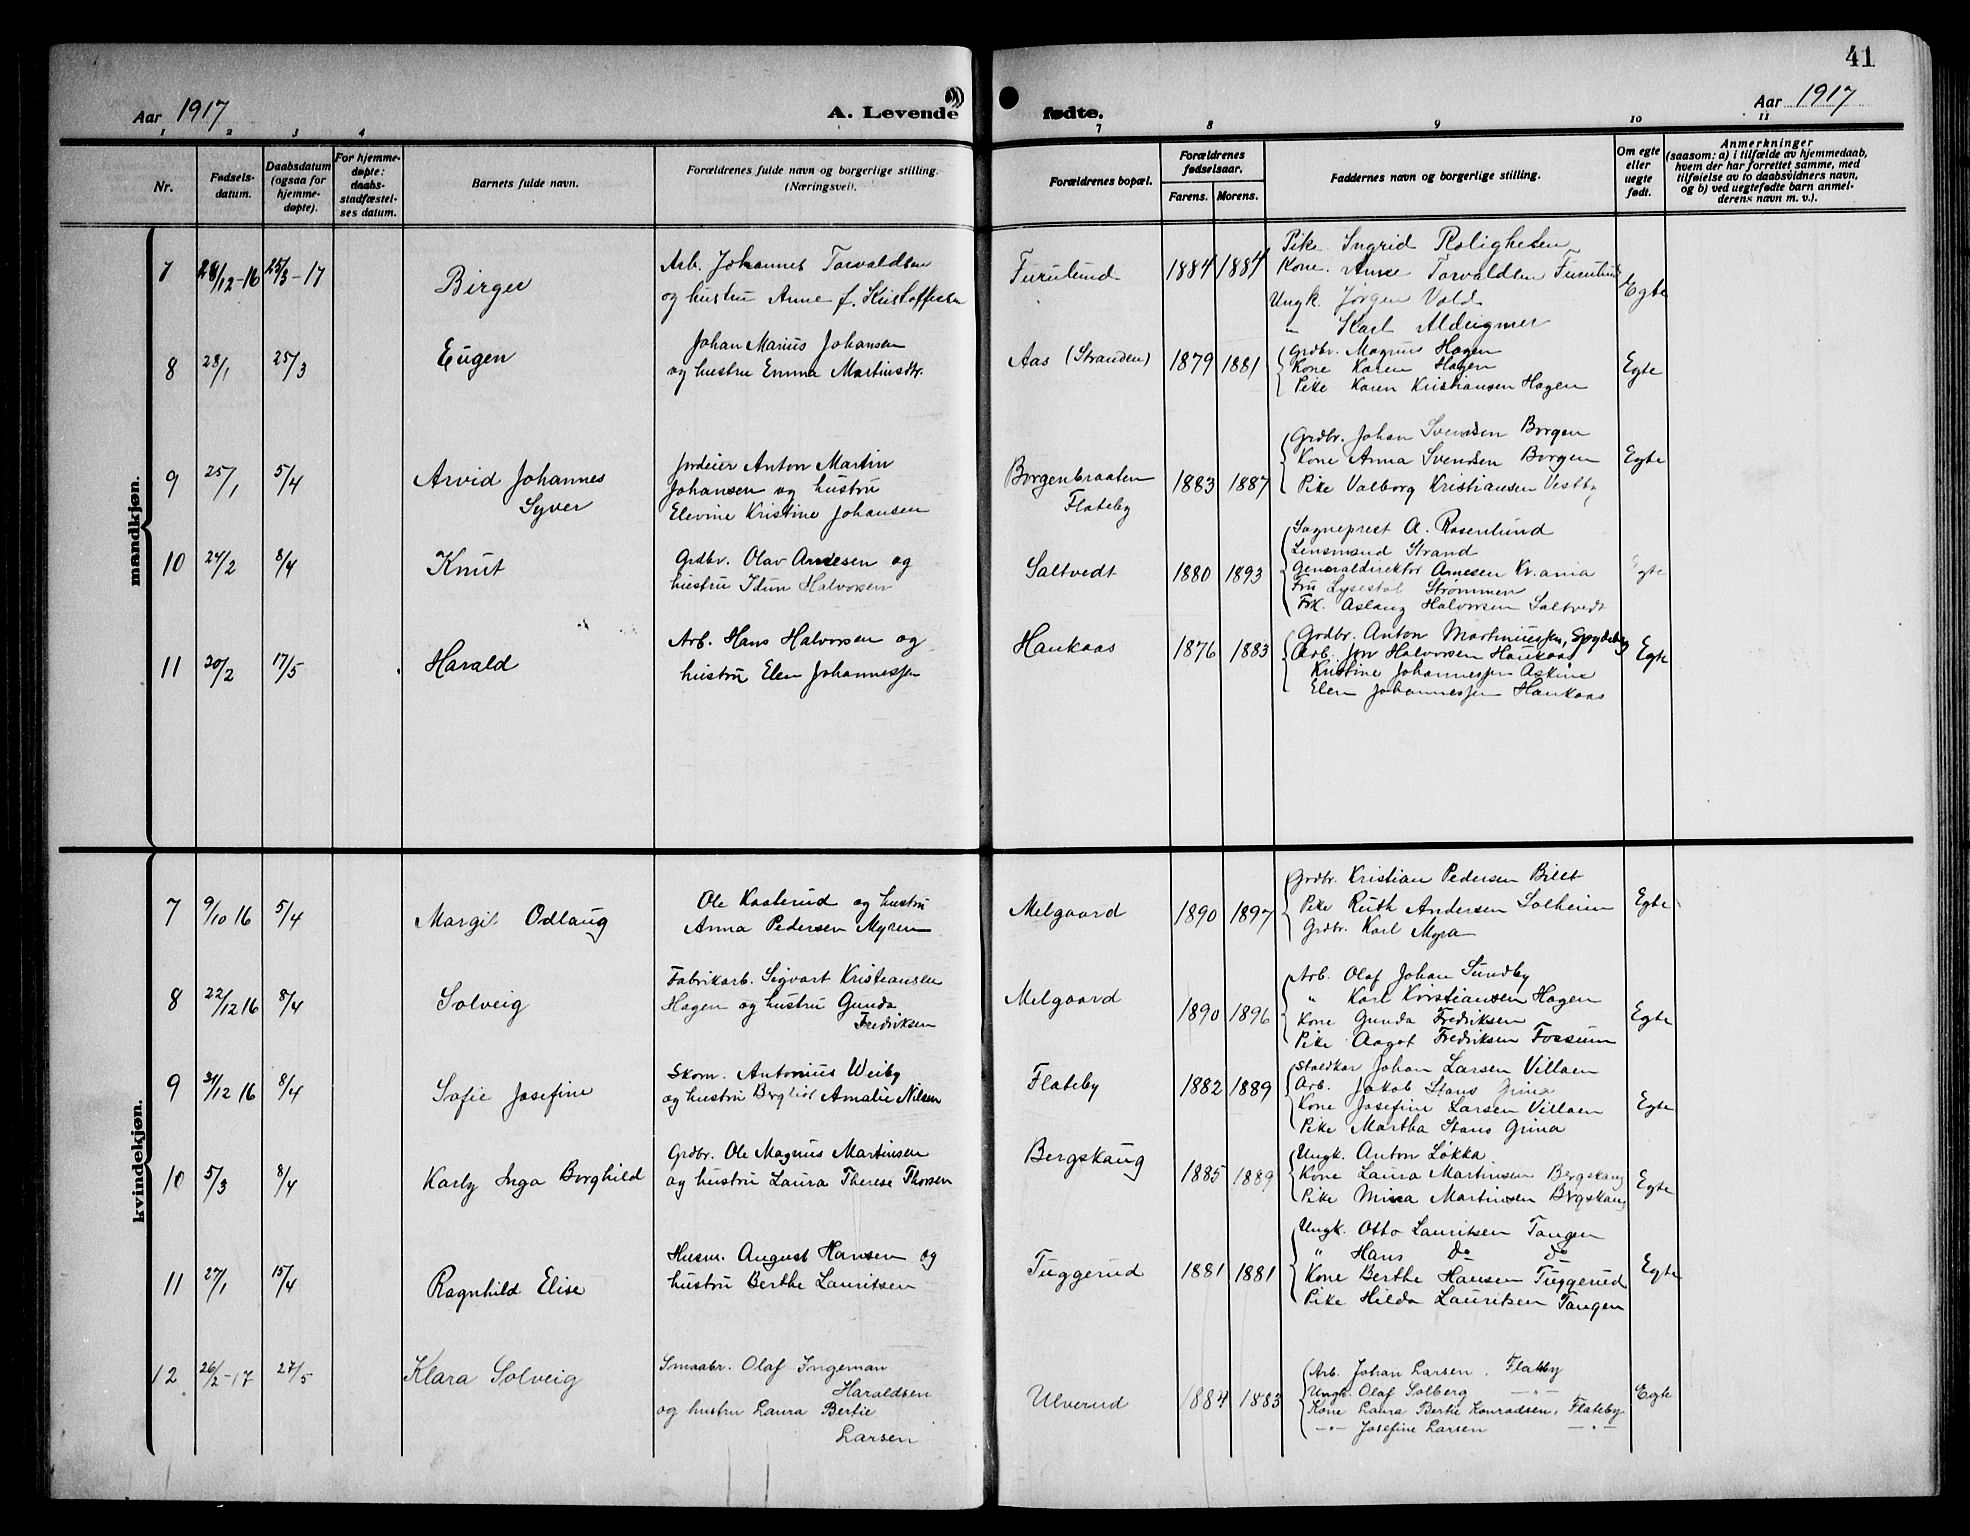 41
Aar 1917
A. Levende fødte.
Aar 1917
1 2 3 4 7 8 9 10 11
Nr.
Fødsels-
datum.
Daabsdatum
(ogsaa for
hjemme-
døpte).
For hjemme-
døpte:
daabs-
stadfæstel-
ses datum.
Barnets fulde navn.
Forældrenes fulde navn og borgerlige stilling.
(Næringsvei).
Forældrenes bopæl.
Forældrenes
fødselsaar.
Farens. Morens.
Faddernes navn og borgerlige stilling.
Om egte
eller
uegte
født.
Anmerkninger
(saasom: a) i tilfælde av hjemmedaab,
hvem der har forrettet samme, med
tilføielse av to daabsvidners navn,
og b) ved uegtefødte barn anmel-
derens navn m. v.).
mandkjøn.
7 28/12-16 25/3-17
Birger
Arb. Johannes Torvaldsen
og hustru Anne f. Kristoffersen
Furulund
1884 1884
Pike Ingrid Roligheten
Kone Anne Torvaldsen Furulund
Ungk. Jørgen Vold
" Karl Aldeigmer
Egte
8 28/1 25/3
Eugen
Johan Marius Johansen
og hustru Emma Martinsdtr.
Aas (Stranden)
1879 1881
Grdbr. Magnus Hagen
Kone Karen Hagen
Pike Karen Kristiansen Hagen
Egte
9 25/1 5/4
Arvid Johannes
Syver
Jordeier Anton Martin
Johansen og hustru
Elevine Kristine Johansen
Borgenbraaten
Flateby
1883 1887
Grdbr. Johan Svendsen Borgen
Kone Anna Svendsen Borgen
Pike Valborg Kristiansen Vestby
Egte
10 24/2 8/4
Knut
Grdbr. Olav Arnesen og
hustru Idun Halvorsen
Saltvedt
1880 1893
Sogneprest A. Rosenlund
Lensmand Strand
Generaldirektør Arnesen Kr.ania
Fru Lysestøl Strømmen
Frk. Aslaug Halvorsen Saltvedt
Egte
11 20/2 17/5
Harald
Arb. Hans Halvorsen og
hustru Elen Johannessen
Haukaas
1876 1883
Grdbr. Anton Martiniussen, Spydeberg
Arb. Jon Halvorsen Haukaas
Kristine Johannessen Askine
Elen Johannessen Haukaas
Egte
kvindekjøn.
7 9/10 16 5/4
Margit Odlaug
Ole Kaalerud og hustru
Anna Pedersen Myren
Melgaard
1890 1897
Grdbr. Kristian Pedersen Billet
Pike Ruth Andersen Solheim
Grdbr. Karl Myra
Egte
8 22/12 16 8/4
Solveig
Fabrikarb. Sigvart Kristiansen
Hagen og hustru Gunda
Fredriksen
Melgaard
1890 1896
Arb. Olaf Johan Sundby
" Karl Kristiansen Hagen
Kone Gunda Fredriksen
Pike Aagot Fredriksen Fossum
Egte
9 31/12 16 8/4
Sofie Josefine
Skom. Antonius Weiby
og hustru Bergliot Amalie Nilsen
Flateby
1882 1889
Staldkar Johan Larsen Villaen
Arb. Jakob Stans Grina
Kone Josefine Larsen Villaen
Pike Martha Stans Grina
Egte
10 5/3 8/4
Karly Inga Borghild
Grdbr. Ole Magnus Martinsen
og hustru Laura Therese Thorsen
Bergskaug
1885 1889
Ungk. Anton Løkka
Kone Laura Martinsen Bergskaug
Pike Mina Martinsen Bergskaug
Egte
11 27/1 15/4
Ragnhild Elise
Husm. August Hansen og
hustru Berthe Lauritsen
Tuggerud
1881 1881
Ungk. Otto Lauritsen Tangen
" Hans do do
Kone Berthe Hansen Tuggerud
Pike Hilda Lauritsen Tangen
Egte
12 26/2-17 27/5
Klara Solveig
Smaabr. Olaf Ingeman
Haraldsen
og hustru Laura Bertie
Larsen
Ulverud
1884 1883
Arb. Johan Larsen, Flateby
Ungk. Olaf Solberg —"—
Kone Laura Bertie Konradsen, Flateby
—"— Josefine Larsen —"—
Egte